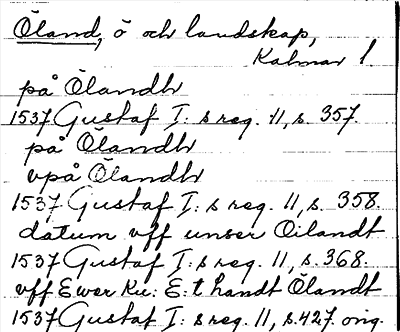 Öland, ö och landskap,
Kalmar l.
på Ölandh
1537 Gustaf I: s reg. 11, s. 357.
på Ölandh
vpå Ölandh
1537 Gustaf I: s reg. 11, s. 358.
datum vff unser Oilandt
1537 Gustaf I: s reg. 11, s. 368.
vff Ewer Ku: E: t handt Ölandt
1537 Gustaf I: s reg. 11, s. 427. orig.